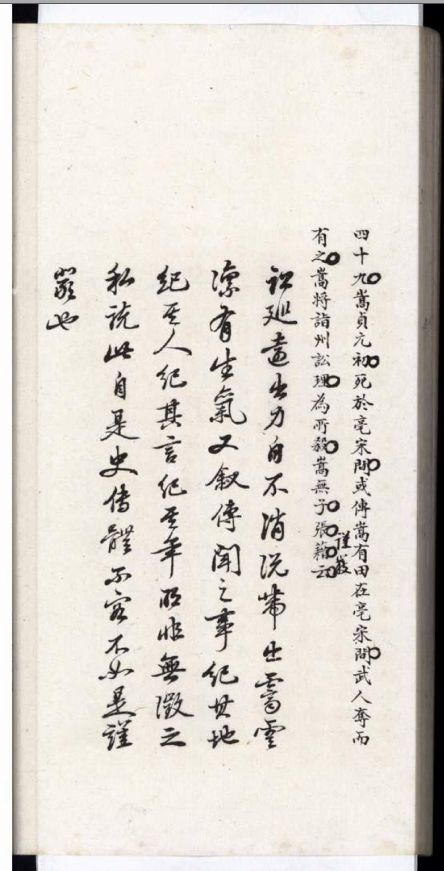 四十九嵩貞元初死於亳宋間或傳嵩有田在亳宋間武人奪而
有之嵩將詣州訟理為所殺嵩無子張籍云
謹嚴
巡遠出力自不消說帶出霽雲
凜有生氣又敘傳聞之事紀其地
紀其人紀其言紀其年非無徵之
私說此自是史傳體不容不如是謹
嚴也